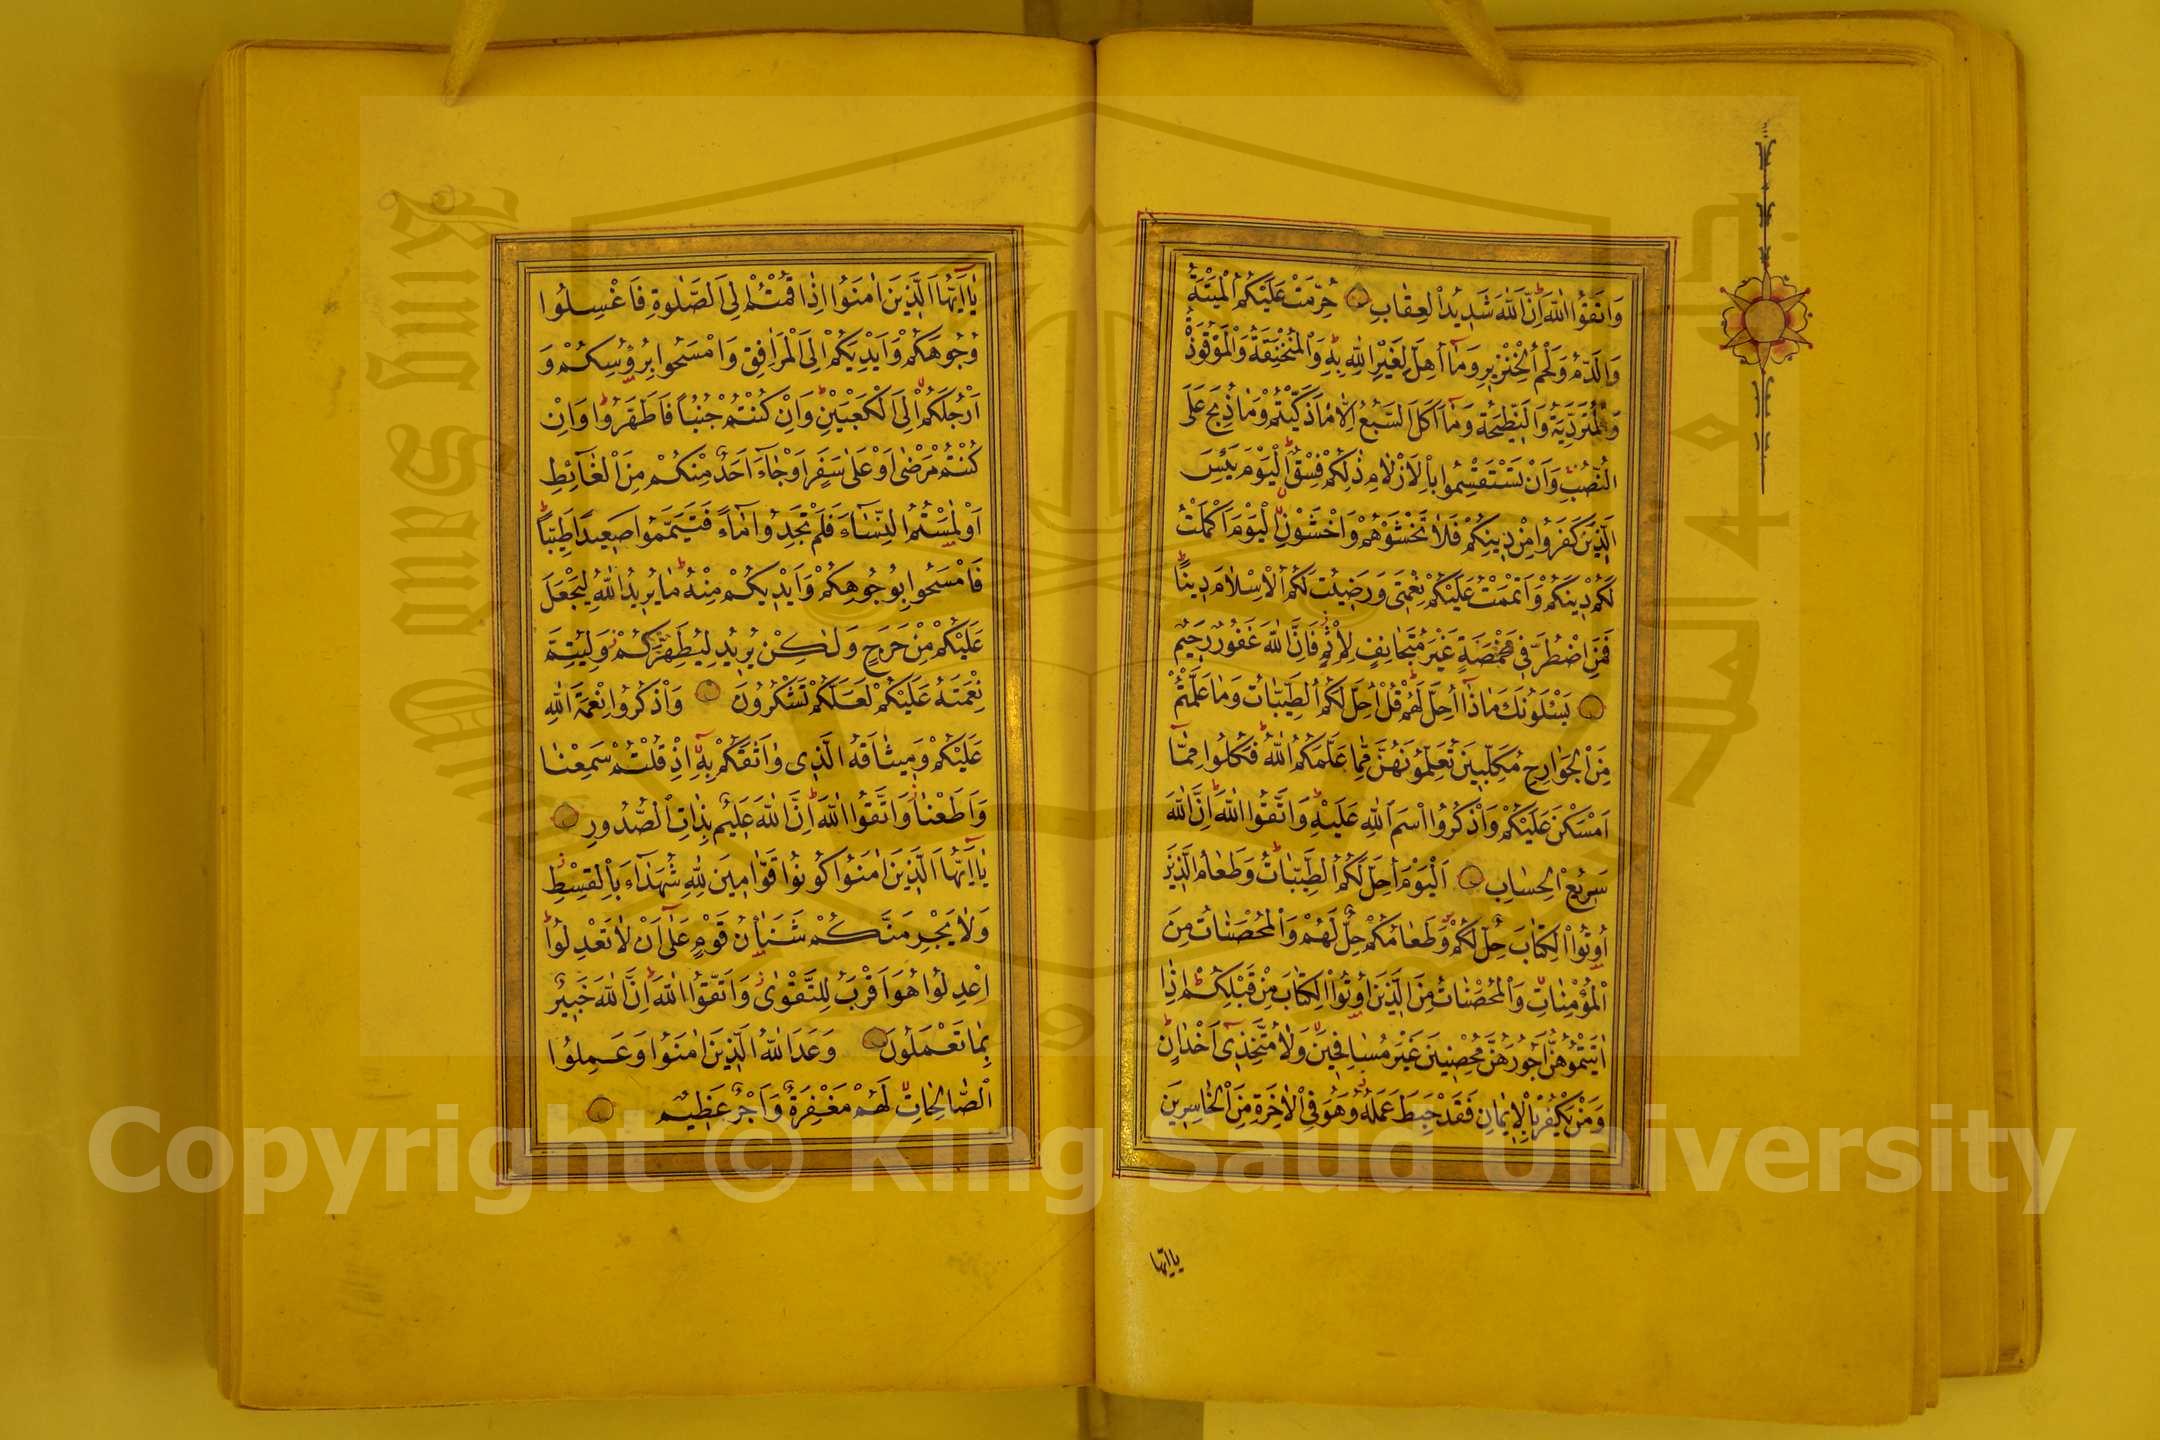 وَاتَّقُوا اللّٰهَ اِنَّ اللّٰهَ شَدٖيدُ الْعِقَابِ حُرِّمَتْ عَلَيْكُمُ الْمَيْتَةُ
وَالدَّمُ وَلَحْمُ الْخِنْزٖيرِ وَمَٓا اُهِلَّ لِغَيْرِ اللّٰهِ بِهٖ وَالْمُنْخَنِقَةُ وَالْمَوْقُوذَةُ
وَالْمُتَرَدِّيَةُ وَالنَّطٖيحَةُ وَمَٓا اَكَلَ السَّبُعُ اِلَّا مَا ذَكَّيْتُمْ وَمَا ذُبِحَ عَلَى
النُّصُبِ وَاَنْ تَسْتَقْسِمُوا بِالْاَزْلَامِ ذٰلِكُمْ فِسْقٌ اَلْيَوْمَ يَئِسَ
الَّذٖينَ كَفَرُوا مِنْ دٖينِكُمْ فَلَا تَخْشَوْهُمْ وَاخْشَوْنِ اَلْيَوْمَ اَكْمَلْتُ
لَكُمْ دٖينَكُمْ وَاَتْمَمْتُ عَلَيْكُمْ نِعْمَتٖى وَرَضٖيتُ لَكُمُ الْاِسْلَامَ دٖينًا
فَمَنِ اضْطُرَّ فٖى مَخْمَصَةٍ غَيْرَ مُتَجَانِفٍ لِاِثْمٍ فَاِنَّ اللّٰهَ غَفُورٌ رَحٖيمٌ
يَسْـَٔلُونَكَ مَاذَٓا اُحِلَّ لَهُمْ قُلْ اُحِلَّ لَكُمُ الطَّيِّبَاتُ وَمَا عَلَّمْتُمْ
مِنَ الْجَوَارِحِ مُكَلِّبٖينَ تُعَلِّمُونَهُنَّ مِمَّا عَلَّمَكُمُ اللّٰهُ فَكُلُوا مِمَّٓا
اَمْسَكْنَ عَلَيْكُمْ وَاذْكُرُوا اسْمَ اللّٰهِ عَلَيْهِ وَاتَّقُوا اللّٰهَ اِنَّ اللّٰهَ
سَرٖيعُ الْحِسَابِ اَلْيَوْمَ اُحِلَّ لَكُمُ الطَّيِّبَاتُ وَطَعَامُ الَّذٖينَ
اُوتُوا الْكِتَابَ حِلٌّ لَكُمْ وَطَعَامُكُمْ حِلٌّ لَهُمْ وَالْمُحْصَنَاتُ مِنَ
الْمُؤْمِنَاتِ وَالْمُحْصَنَاتُ مِنَ الَّذٖينَ اُوتُوا الْكِتَابَ مِنْ قَبْلِكُمْ اِذَٓا
اٰتَيْتُمُوهُنَّ اُجُورَهُنَّ مُحْصِنٖينَ غَيْرَ مُسَافِحٖينَ وَلَا مُتَّخِذٖٓى اَخْدَانٍ
وَمَنْ يَكْفُرْ بِالْاٖيمَانِ فَقَدْ حَبِطَ عَمَلُهُ وَهُوَ فِى الْاٰخِرَةِ مِنَ الْخَاسِرٖينَ
يا ايها
يَٓا اَيُّهَا الَّذٖينَ اٰمَنُٓوا اِذَا قُمْتُمْ اِلَى الصَّلٰوةِ فَاغْسِلُوا
وُجُوهَكُمْ وَاَيْدِيَكُمْ اِلَى الْمَرَافِقِ وَامْسَحُوا بِرُؤُسِكُمْ وَ
اَرْجُلَكُمْ اِلَى الْكَعْبَيْنِ وَاِنْ كُنْتُمْ جُنُبًا فَاطَّهَّرُوا وَاِنْ
كُنْتُمْ مَرْضٰٓى اَوْ عَلٰى سَفَرٍ اَوْ جَٓاءَ اَحَدٌ مِنْكُمْ مِنَ الْغَٓائِطِ
اَوْ لٰمَسْتُمُ النِّسَٓاءَ فَلَمْ تَجِدُوا مَٓاءً فَتَيَمَّمُوا صَعٖيدًا طَيِّبًا
فَامْسَحُوا بِوُجُوهِكُمْ وَاَيْدٖيكُمْ مِنْهُ مَا يُرٖيدُ اللّٰهُ لِيَجْعَلَ
عَلَيْكُمْ مِنْ حَرَجٍ وَلٰكِنْ يُرٖيدُ لِيُطَهِّرَكُمْ وَلِيُتِمَّ
نِعْمَتَهُ عَلَيْكُمْ لَعَلَّكُمْ تَشْكُرُونَ وَاذْكُرُوا نِعْمَةَ اللّٰهِ
عَلَيْكُمْ وَمٖيثَاقَهُ الَّذٖى وَاثَقَكُمْ بِهٖٓ اِذْ قُلْتُمْ سَمِعْنَا
وَاَطَعْنَا وَاتَّقُوا اللّٰهَ اِنَّ اللّٰهَ عَلٖيمٌ بِذَاتِ الصُّدُورِ
يَٓا اَيُّهَا الَّذٖينَ اٰمَنُوا كُونُوا قَوَّامٖينَ لِلّٰهِ شُهَدَٓاءَ بِالْقِسْطِ
وَلَا يَجْرِمَنَّكُمْ شَنَاٰنُ قَوْمٍ عَلٰٓى اَنْ لَا تَعْدِلُوا
اِعْدِلُوا هُوَ اَقْرَبُ لِلتَّقْوٰى وَاتَّقُوا اللّٰهَ اِنَّ اللّٰهَ خَبٖيرٌ
بِمَا تَعْمَلُونَ وَعَدَ اللّٰهُ الَّذٖينَ اٰمَنُوا وَعَمِلُوا
الصَّالِحَاتِ لَهُمْ مَغْفِرَةٌ وَاَجْرٌ عَظٖيمٌ
Copyright © King Saud University